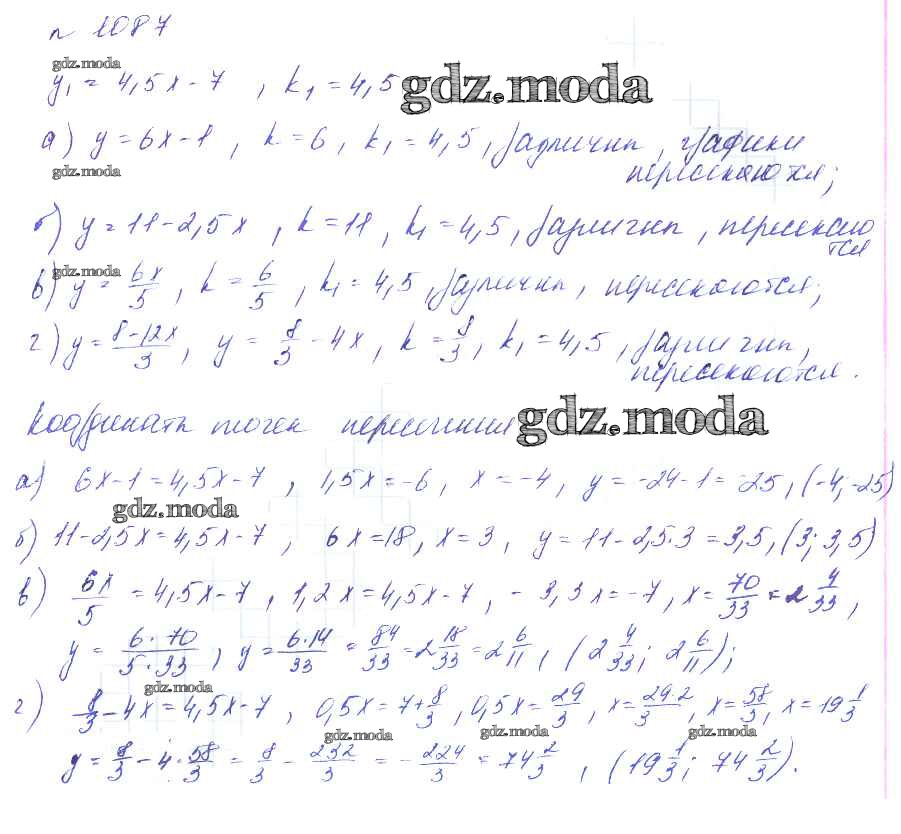 п 1087
gdz.moda
y₁ = 4,5x - 7 , k₁ = 4,5 gdz.moda
а) y = 6x - 1 , k = 6 , k₁ = 4,5 , различны , графики
gdz.moda
пересекаются;
б) y = 11 - 2,5x , k = 11 , k₁ = 4,5 , различны , пересекаются
gdz.moda
в) y = 6x/5 , k = 6/5 , k₁ = 4,5 , различны , пересекаются;
г) y = (8-12x)/3 , y = 8/3 - 4x , k = 8/3 , k₁ = 4,5 , различны ,
пересекаются .
Координаты точек пересечения gdz.moda
а) 6x - 1 = 4,5x - 7 , 1,5x = -6 , x = -4 , y = -24 - 1 = -25 , (-4; -25)
gdz.moda
б) 11 - 2,5x = 4,5x - 7 , 6x = 18 , x = 3 , y = 11 - 2,5·3 = 3,5 , (3; 3,5)
в) 6x/5 = 4,5x - 7 , 1,2x = 4,5x - 7 , -3,3x = -7 , x = 70/33 = 2 4/33 ,
y = (6·70)/(5·33) , y = (6·14)/33 = 84/33 = 2 18/33 = 2 6/11 , (2 4/33 ; 2 6/11);
gdz.moda
г) 8/3 - 4x = 4,5x - 7 , 0,5x = 7 + 8/3 , 0,5x = 29/3 , x = (29·2)/3 , x = 58/3 , x = 19 1/3
gdz.moda gdz.moda
y = 8/3 - 4·58/3 = 8/3 - 232/3 = -224/3 = 74 2/3 , (19 1/3 ; 74 2/3).